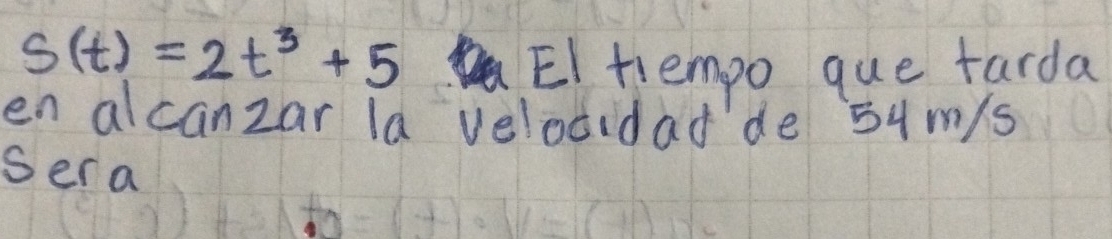 S(t) = 2t³ + 5 El tiempo que tarda
en alcanzar la velocidad de 54 m/s
Sera